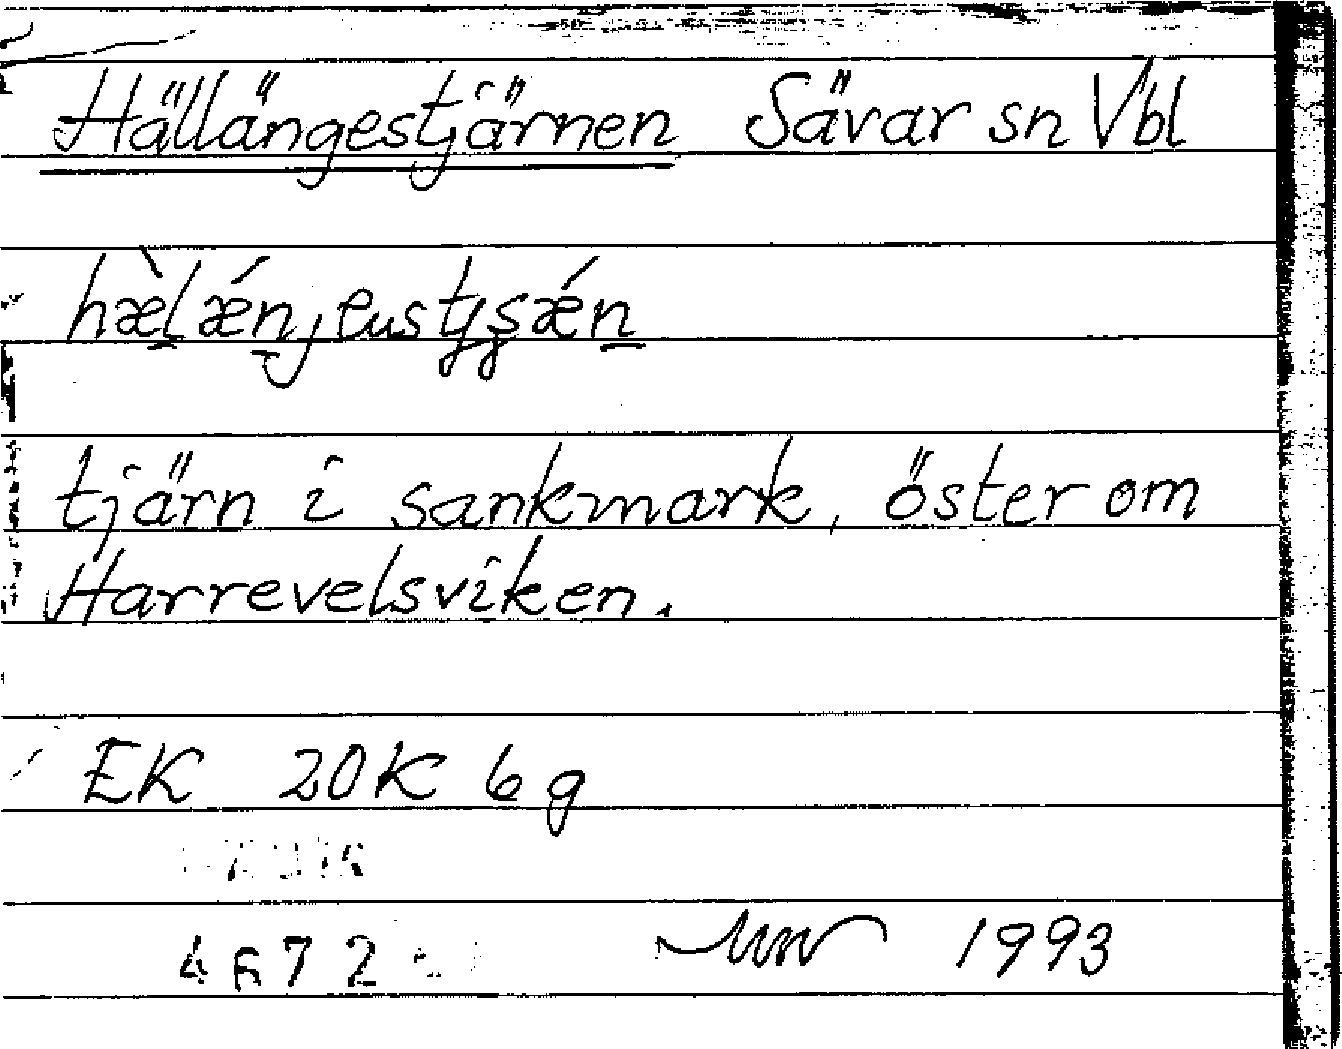 Hällängestjärnen Sävar sn Vbl
hæ̀lǽnjeustjsǽn
tjärn i sankmark, öster om
Harrevelsviken.
EK 20K 6g
4672
1993